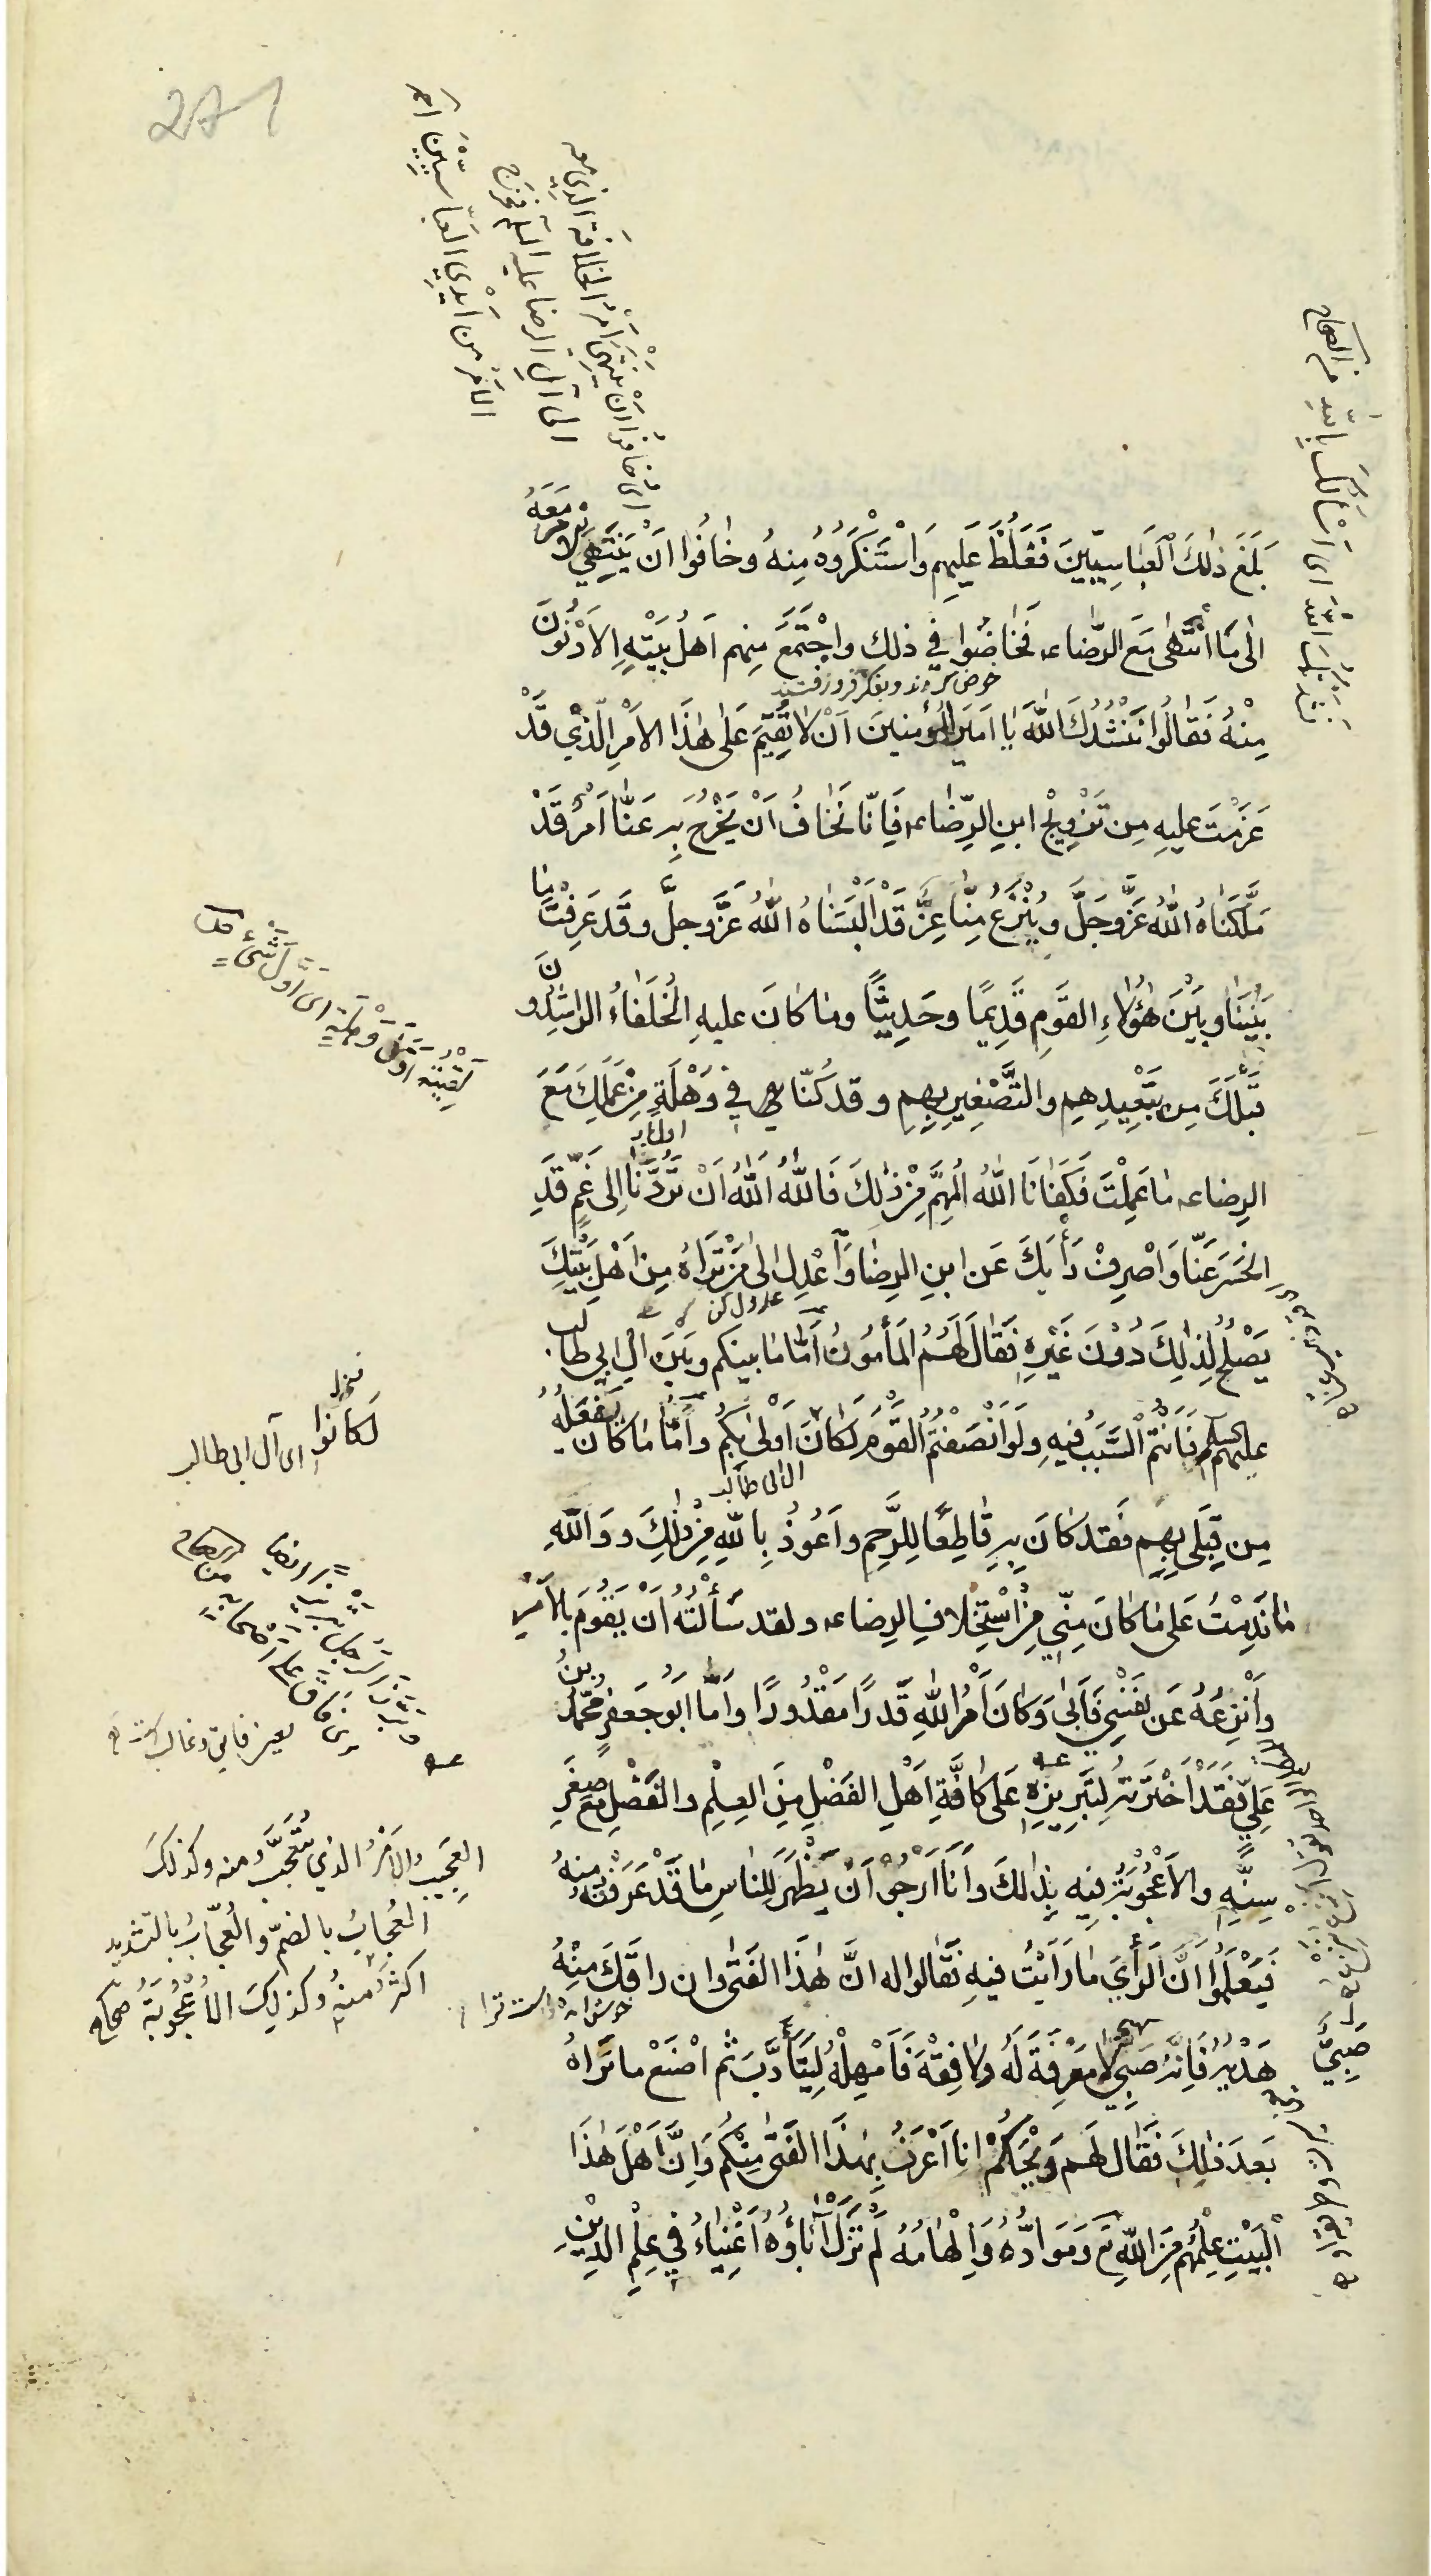 271
بَلَغَ ذٰلكَ العَبَّاسِيّينَ فَغَلُظَ عَلَيهِم وَاسْتَنْكَرُوهُ مِنهُ وخافُوا اَن يَنتَهِي الامر مَعَهُ
الى مَا انْتَهى مَعَ الرِّضاء فَخاضُوا في ذلك واجْتَمَعَ مِنهم اَهلُ بَيْتِهِ الاَدْنَونَ
خوض کردند و بفکر فرو رفتند
مِنْهُ فَقالُوا نَنْشُدُكَ اللهَ يا اَميَر المؤمِنينَ اَنْ لا تُقيمَ عَلى هٰذَا الاَمْرِ الّذي قَدْ
عَزَمْتَ عليهِ مِن تَزْويْجِ ابنِ الرِّضاء فَاِنّا نَخافُ اَنْ يَخْرُجَ بِه عَنّا اَمْرٌ قَدْ
مَلَّكَناهُ اللهُ عَزَّ وجَلَّ ويُنْزَعُ مِنّا عِزٌّ قَدْ اَلْبَسَناهُ اللهُ عَزَّ وجلَّ وقَد عَرَفْتَ ما
بَيْنَنا وبَيْنَ هٰؤلاءِ القَومِ قَديمًا وحَديثًا وما كانَ عليهِ الخُلَفاءُ الراشِدُونَ
قَبْلَكَ مِن تَبْعيدِهِم والتَّصْغيرِ بِهِم وقد كُنّا في وَهْلَةٍ مِنْ عَمَلِكَ مَعَ
الرِضاء ما عَمِلْتَ فَكَفانَا اللهُ المُهِمَّ مِنْ ذلكَ فَاللهَ اَللهَ اَنْ تَرُدَّنا اِلى غَمٍّ قَدِ
انحَسَرَ عَنّا وَاصْرِفْ رَأيَكَ عَن ابنِ الرِضا وَاعْدِل الى مَنْ تَراهُ مِن اَهْلِ بَيْتِكَ
عدول کن
يَصْلُحُ لِذلِكَ دُوْنَ غَيْرِه فَقالَ لَهُمُ المَأمُونُ اَمّا ما بينكم وبَيْنَ الِ ابي طالب
عليهم السلم فَاَنْتُم السَّبَبُ فيهِ ولَو اَنْصَفْتُم القَوْمَ لَكانَ اَوْلى بكُم واَمّا ما كانَ يَفْعَلُهُ
ال ابى طالب
مِن قِبَلي بِهِم فَقد كانَ بِه قاطِعًا لِلرَّحِمِ واَعُوذُ بِاللهِ مِنْ ذلِكَ ووَاللهِ
ما نَدِمْتُ عَلى ما كانَ مِنّي مِنْ اسْتِخْلافِ الرِضاء ولقد سَأَلْتُهُ اَنْ يَقُومَ بالاَمْرِ
وَاَنْزِعُهُ عَن نَفْسي فَاَبى وَكانَ اَمْرُ اللهِ قَدرًا مَقْدُورًا واَمّا اَبُو جَعفرٍ مُحَمّدُ بنُ
عَلِيّ فَقَدْ اخْتَرتُه لِتَبْرِيزِه عَلى كافَّةِ اَهْلِ الفَضْلِ مِنَ العِلمِ والفَضْلِ مَعَ صِغَرِ
سِنِّهِ والاُعْجُوبَةُ فيه بِذلكَ وَاَنَا اَرجُوْ اَن يَظْهَرَ لِلناسِ ما قَدْ عَرَفْتُه مِنهُ
فَيَعْلَمُوا اَنَّ الرَأيَ ما رَاَيْتُ فيهِ فَقالوا له انَّ هٰذَا الفَتى وان راقَكَ مِنْهُ
هَدْيُه فَاِنَّه صَبِيٌّ لا مَعْرِفَةَ لَهُ ولا فِقْهَ فَاَمْهِلْهُ لِيَتَأَدَّبَ ثم اصْنَعْ ما تَراهُ
بَعدَ ذلِكَ فَقالَ لَهم وَيْحَكُمْ انا اَعْرَفُ بِهٰذَا الفَتى مِنْكُم وَاِنَّ اَهْلَ هٰذَا
الْبَيْتِ عِلْمُهُم مِنَ اللهِ تع ومَوادُّه وَاِلْهامُهُ لَم تَزَلْ آباؤُهُ اَغْنِياءُ في عِلْمِ الدينِ
اى خافوا اَنْ يَنْتَهِيَ اَمْرُ الخلافة الذي معه
الى آلِ الرضا عليه السلم فيخرج
الاَمْرُ مِن اَيْدِي العَبّاسِيّينَ
نَشَدْتُكَ اللهَ اى سَأَلْتُكَ بِاللهِ من الصحاح
لَقِيتُه اَوّلَ وَهْلَة اى اَوَّلَ شَيْءٍ
لَكانُوا
اى آل ابى طالب
العَجيبُ الاَمْرُ الذي يُتَعَجَّبُ منه وكذلكَ
العُجابُ بالضمّ والعُجّابُ بالتشديد
اكثرُ مِنهُ وكذلِكَ الاُعْجُوبَةُ صحاح
صَبِيٌّ